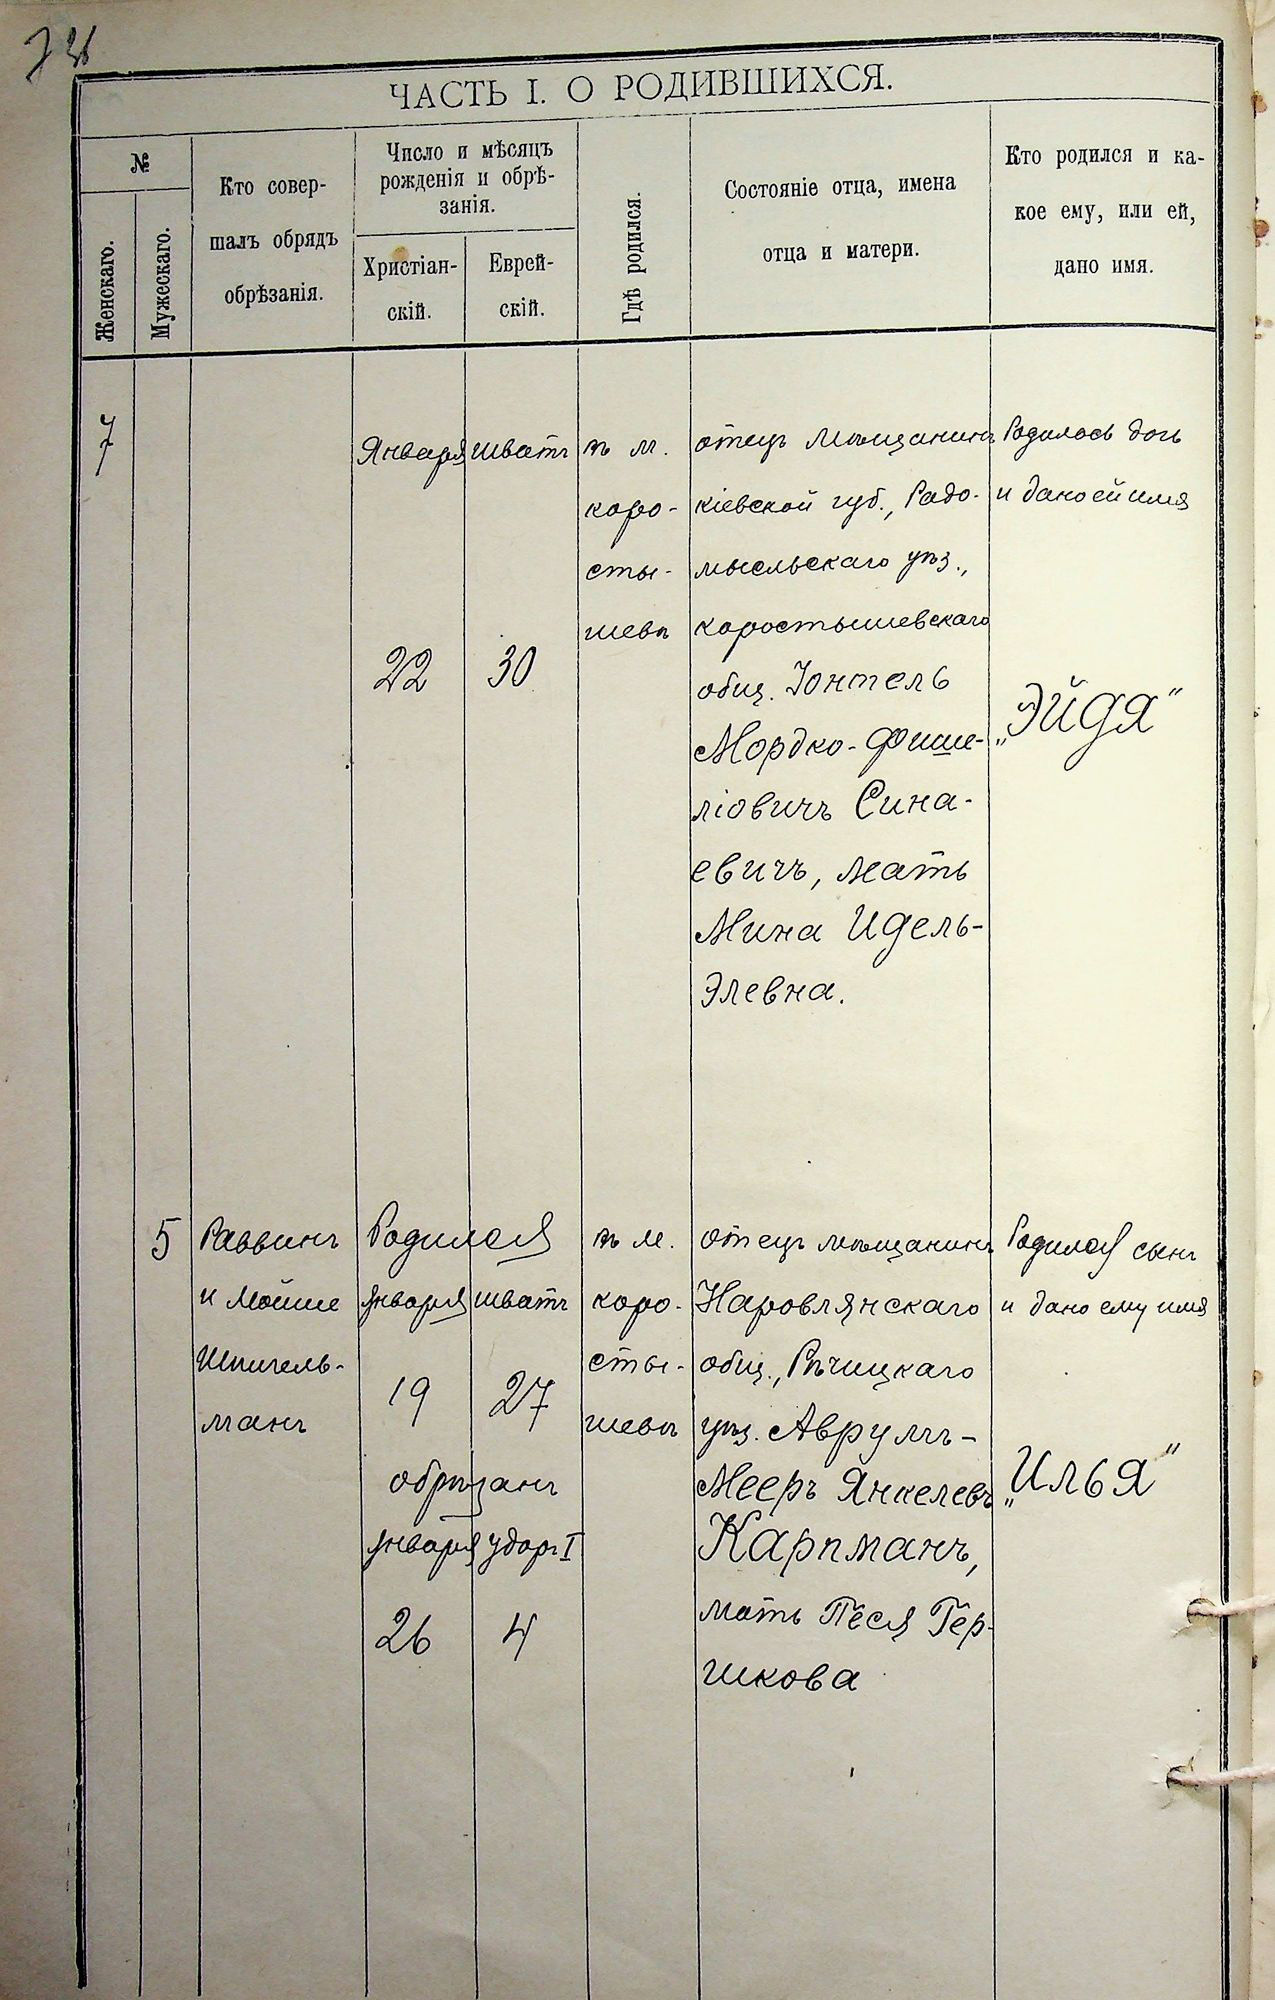 ЧАСТЬ I. О РОДИВШИХСЯ.
№
Женскаго.
Мужескаго.
Кто совер-
шалъ обрядъ
обрѣзанія.
Число и мѣсяцъ
рожденія и обрѣ-
занія.
Христіан-
скій.
Еврей-
скій.
Гдѣ родился.
Состояніе отца, имена
отца и матери.
Кто родился и ка-
кое ему, или ей,
дано имя.
7
Января
22
Шватъ
30
въ м.
коро-
сты-
шевѣ
отецъ мѣщанинъ
кіевской губ., Радо-
мысльскаго уѣз.,
коростышевскаго
общ. Іонтель
Мордко-Фише-
ліовичъ Сина-
евичъ, мать
Мина Идель-
Элевна.
Родилось дочь
и дано ей имя
„Эйдя"
5
Раввинъ
и Мойше
Шпигель-
манъ
Родился
января шватъ
19 27
обрѣзанъ
января удоръ I
26 4
въ м.
коро-
сты-
шевѣ
отецъ мѣщанинъ
Наровлянскаго
общ., Рѣчицкаго
уѣз. Аврумъ-
Мееръ Янкелевъ
Карпманъ,
мать Песя Гер-
шкова
Родился сынъ
и дано ему имя
„Илья"